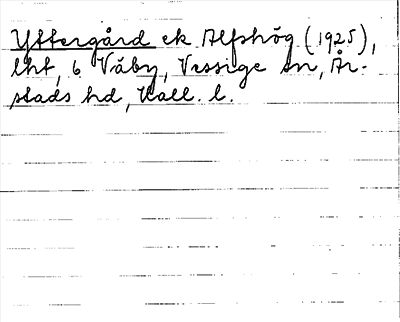 Yttergård ek Alfshög (1925),
lht, 6 Väby, Vessige sn, År-
stads hd, Hall. l.